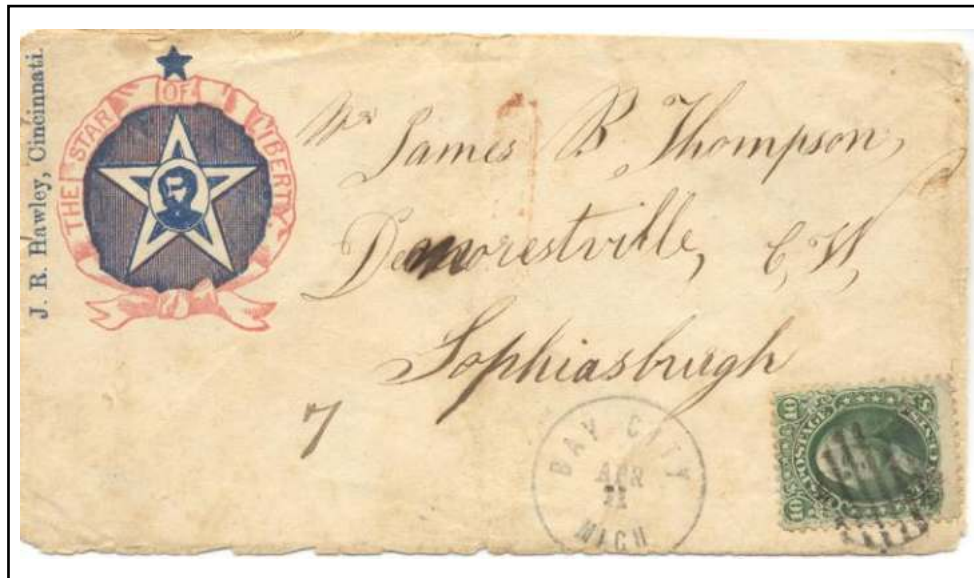 J. R. Hawley, Cincinnati.
THE STAR OF LIBERTY
Mr James B. Thompson,
Demorestville, C,W,
Sophiasburgh
7
BAY CITY
APR
MICH
10
U.S. POSTAGE